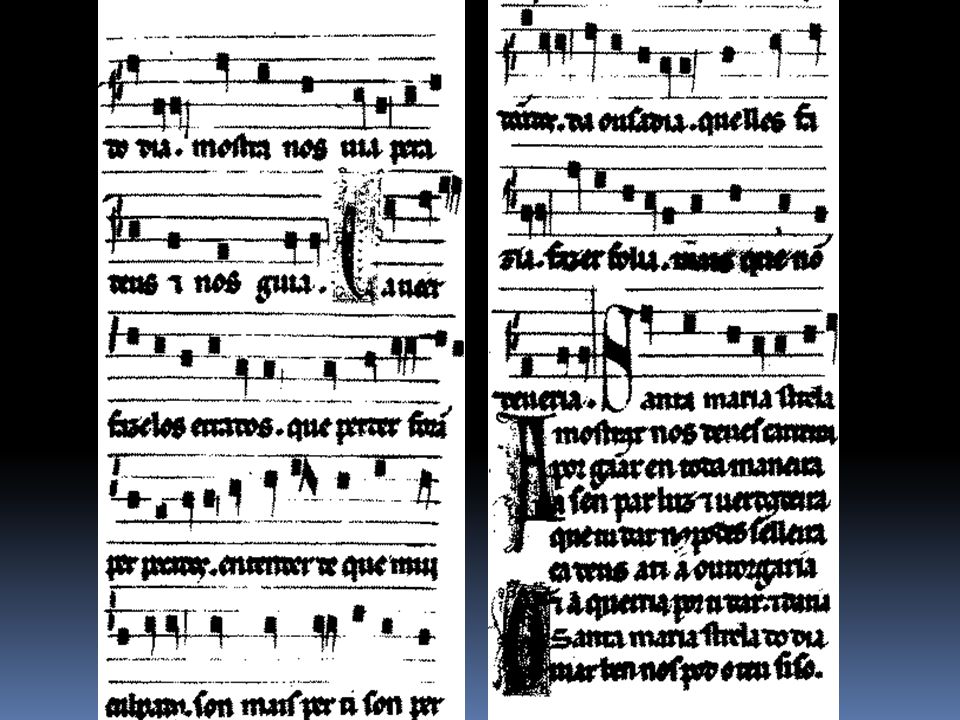 do dia. mostra nos uia pera
deus ⁊ nos guia. aueer
fazelos errados. que perder forã
per pecados. entender de que mui
culpados. son mais per ti son per
da ousadia. quelles fa
zia. fazer folia. mais que nõ
deueria. Santa maria strela
mostrar nos deues carreira
por gãar en toda maneira
a sen par luz ⁊ uerdadeira
que tu dar nos podes senlleira
ca deus a ti a outorgaria
⁊ a querria por ti dar. ⁊ daria
Santa maria strela do dia
ben nos pod o teu siso.